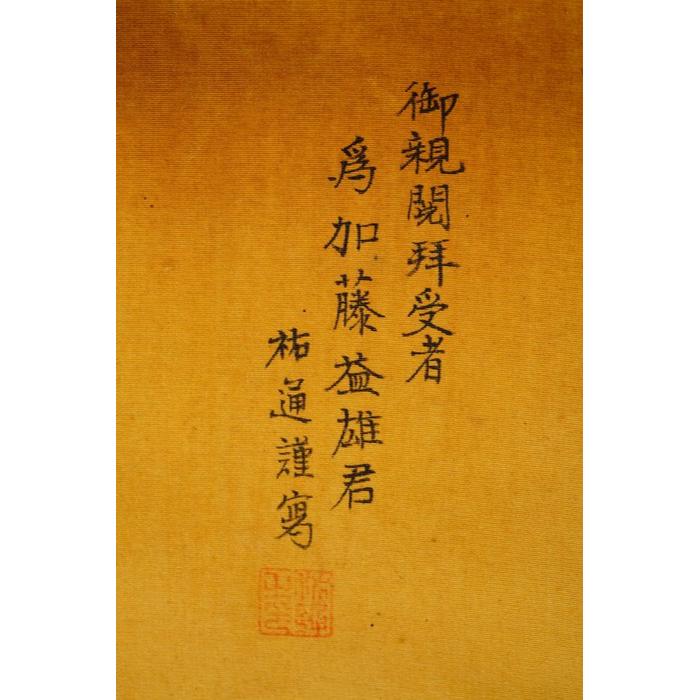 御親閲拜受者
爲加藤益雄君
祐通謹寫